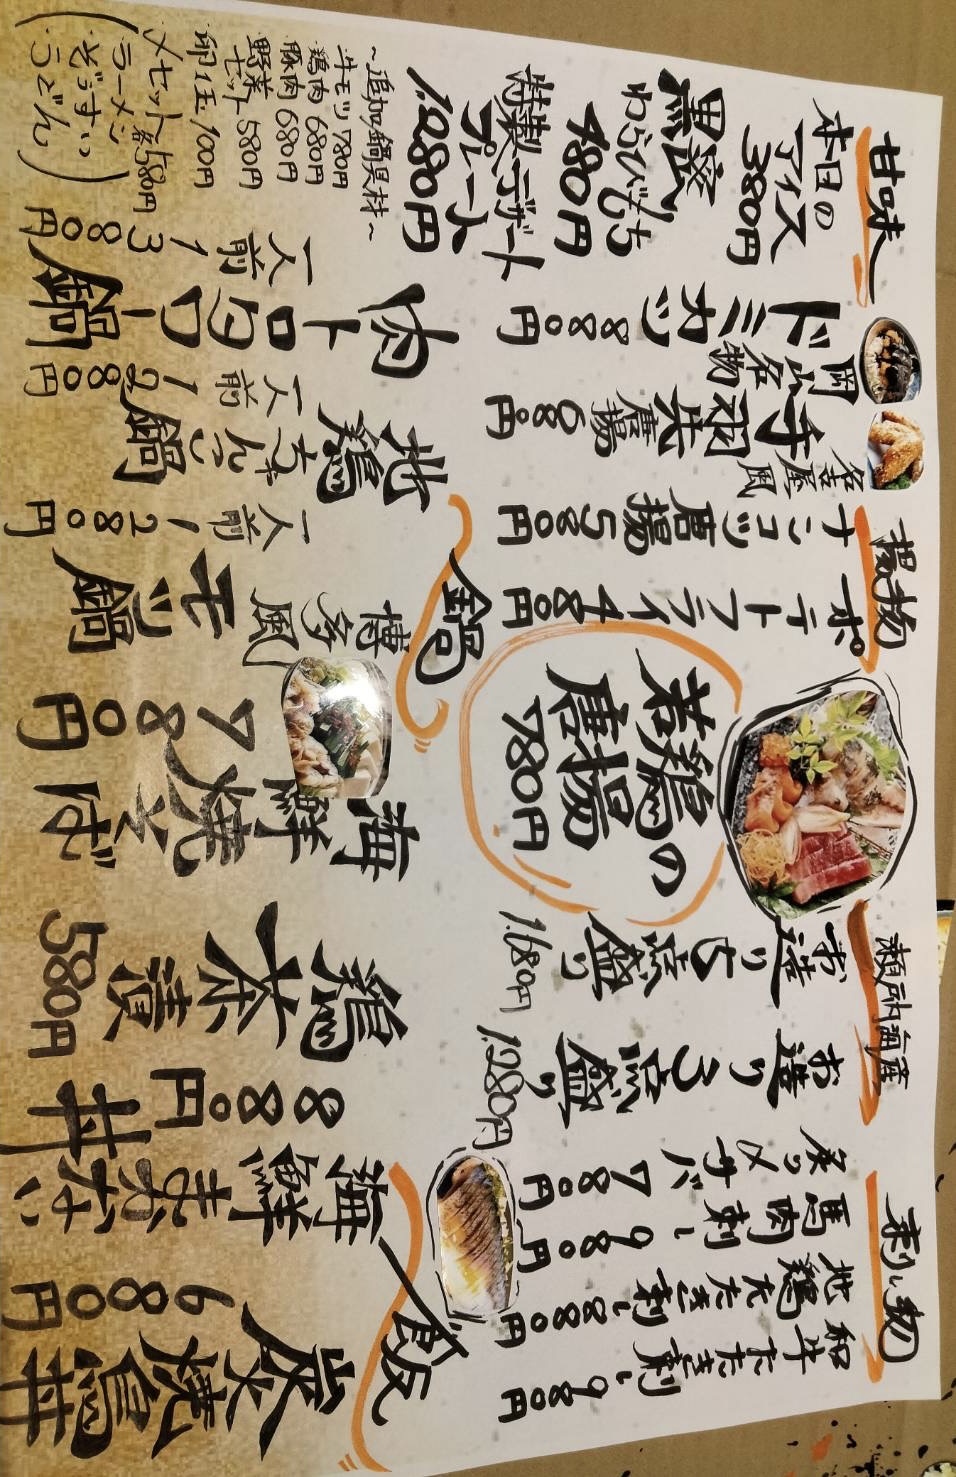 刺し物
炙りメサバ
780円
馬肉刺し
980円
地鶏たたき刺し
880円
和牛たたき刺し
980円
瀬戸内海産
お造り3点盛り
1.280円
お造り5点盛り
1.680円
若鶏の
唐揚
780円
揚げ物
ポテトフライ
480円
ナンコツ唐揚
580円
名古屋風
手羽先唐揚
680円
岡山名物
ドミカツ
880円
甘味
本日の
アイス
380円
黒蜜
わらびもち
480円
特製デザート
プレート
1.280円
飯
炭焼鶏丼
680円
海鮮まかない丼
880円
鶏茶漬
580円
海鮮焼そば
780円
鍋
博多風
モツ鍋
一人前
1280円
地鶏ちゃんこ鍋
一人前
1280円
肉トロタワー鍋
一人前
1380円
～追加鍋具材～
牛モツ780円
鶏肉680円
豚肉680円
野菜セット580円
卵1玉100円
〆セット各580円
(ラーメン
ぞうすい
うどん)